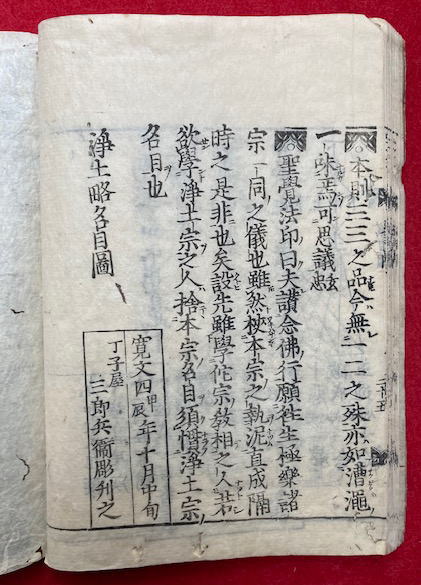 本則三三之品今無一二之殊亦如淄澠
一味焉可思議玄忠
聖覺法印曰夫讃念佛行願徃生極樂諸
宗一同之儀也雖然挾本宗之執泥直成隔
時之是非也矣設先雖學佗宗敎相之人若
欲學淨土宗之人捨本宗名目須慴淨土宗
名目也
淨土略名目圖
寛文四甲辰年十月中旬
丁子屋
三郎兵衞彫刋之